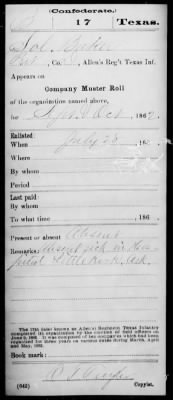 (Confederate.)
17 Texas.
Sol. Baker
Pvt, Co. , Allen's Reg't Texas Inf.
Appears on
Company Muster Roll
of the organization named above,
for Sept & Oct, 1862.
Enlisted
When July 28, 186
Where
By whom
Period
Last paid
By whom
To what time , 186
Present or absent Absent
Remarks: Absent sick in Hos-
pital Little Rock, Ark.
The 17th (also known as Allen's) Regiment Texas Infantry
completed its organization by the election of field officers on
June 1862. It was composed of ten companies which had been
organized for three years on various dates during March, April
and May, 1862.
Book mark:
(642) Copyist.